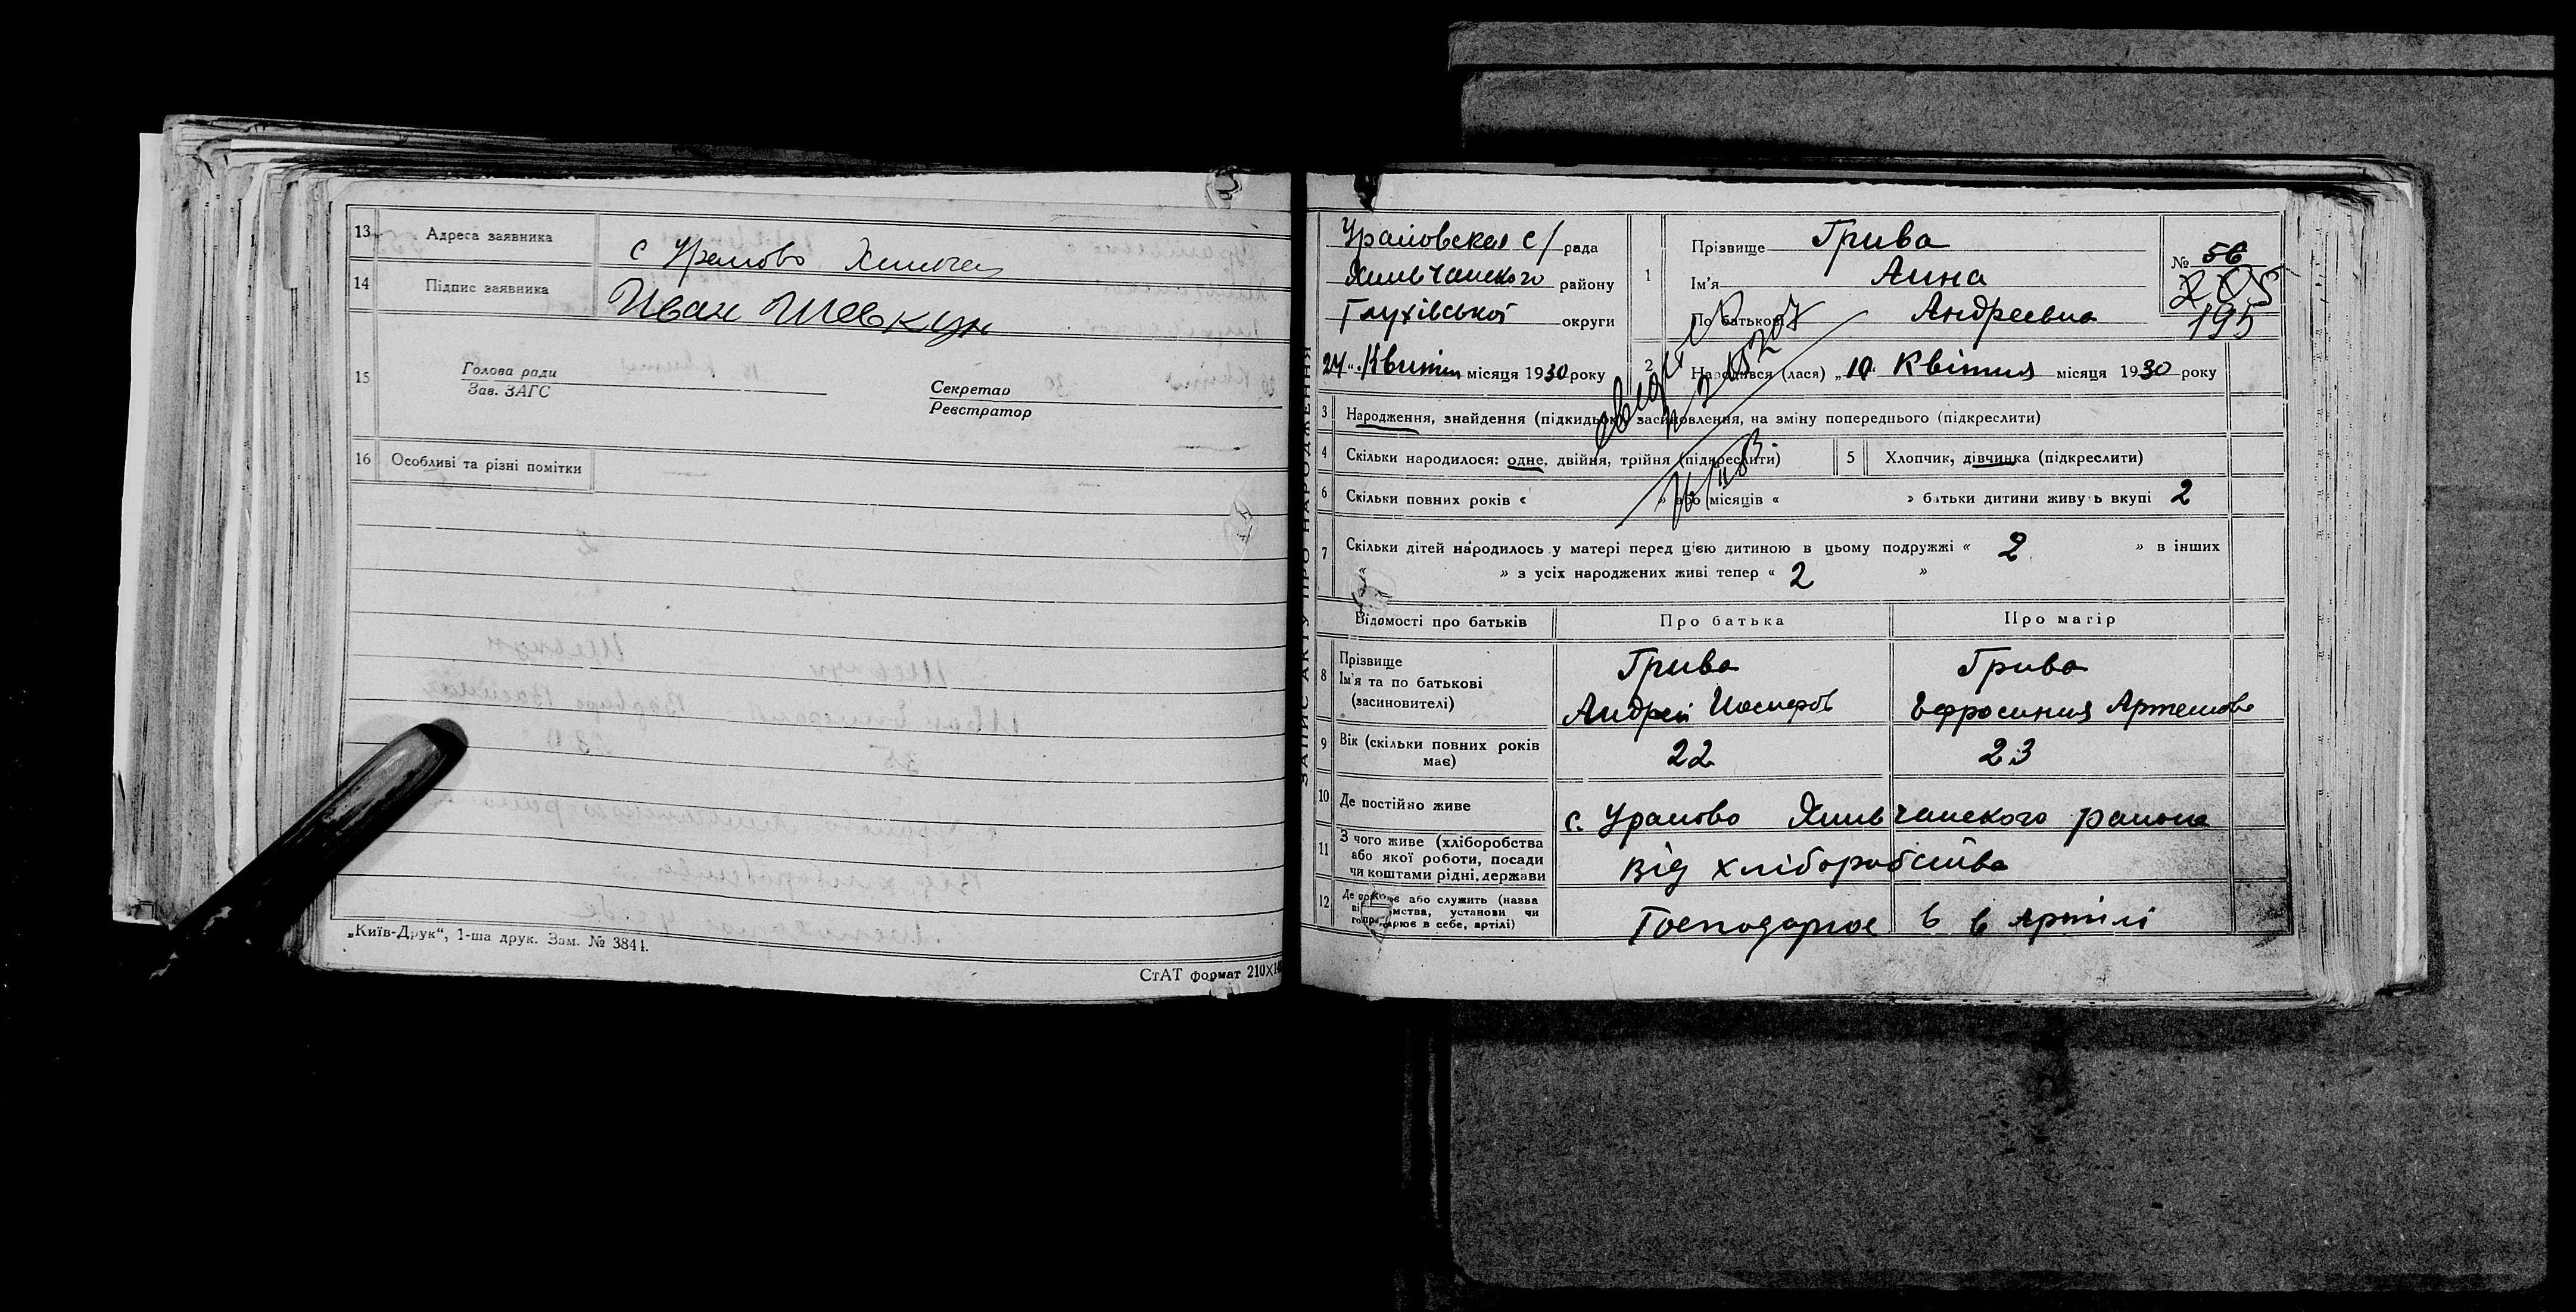 13 Адреса заявника с Уралово Хильчан
14 Підпис заявника Иван Шевкун
15 Голова ради
Зав. ЗАГС
Секретар
Реєстратор
16 Особливі та різні помітки
„Київ-Друк“, 1-ша друк. Зам. № 3841.
СтАТ формат 210×14
ЗАПИС АКТУ ПРО НАРОДЖЕННЯ
Ураловская с/рада
Хильчанского району
Глухівської округи
24 „ Квитня місяця 1930 року
1 Прізвище Грива
Ім'я Анна
По батькові Андреевна
№ 56
205
195
2 Народився (лася) „10“ Квітня місяця 1930 року
3 Народження, знайдення (підкидьок) засиновлення, на зміну попереднього (підкреслити)
4 Скільки народилося: одне, двійня, трійня (підкреслити)
5 Хлопчик, дівчинка (підкреслити)
6 Скільки повних років « » або місяців « » батьки дитини живуть вкупі 2
7 Скільки дітей народилось у матері перед цією дитиною в цьому подружжі « 2 » в інших
« » з усіх народжених живі тепер « 2 »
Відомості про батьків Про батька Про матір
8 Прізвище Грива Грива
Ім'я та по батькові
(засиновителі) Андрей Иосифов Ефросиния Артемова
9 Вік (скільки повних років має) 22 23
10 Де постійно живе с. Уралово Хильчанского района
11 З чого живе (хліборобства
або якої роботи, посади
чи коштами рідні, держави
Від хліборобства
12 Де працює або служить (назва
підприємства, установи чи
господарює в себе, артілі)
Господарює в в Артілі